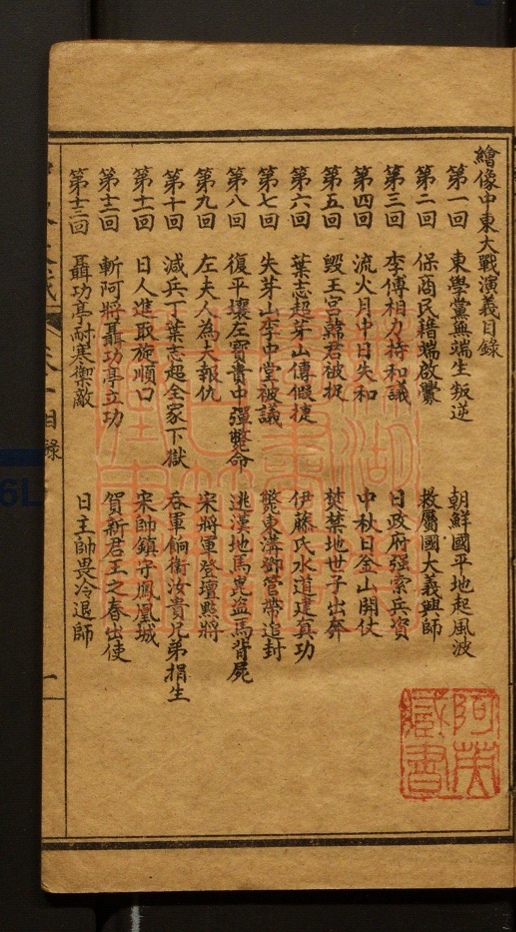 繪像中東大戰演義目錄
第一回 東學黨無端生叛逆 朝鮮國平地起風波
第二回 保商民藉端啟釁 救屬國大義興師
第三回 李傅相力持和議 日政府强索兵資
第四回 流火月中日失和 中秋日金山開仗
第五回 毀王宮韓君被捉 焚禁地世子出奔
第六回 葉志超芽山傳假捷 伊藤氏水道建真功
第七回 失芽山李中堂被議 斃東溝鄧管帶追封
第八回 復平壤左寶貴中彈斃命 逃漢地馬崑盗馬背屍
第九回 左夫人為夫報仇 宋將軍登壇點將
第十回 減兵丁葉志超全家下獄 吞軍餉衛汝貴兄弟捐生
第十一回 日人進取旅順口 宋帥鎮守鳳凰城
第十二回 斬阿將聶功亭立功 賀新君王之春出使
第十三回 聶功亭耐寒禦敵 日主帥畏冷退師
目錄
一
阿英
藏書